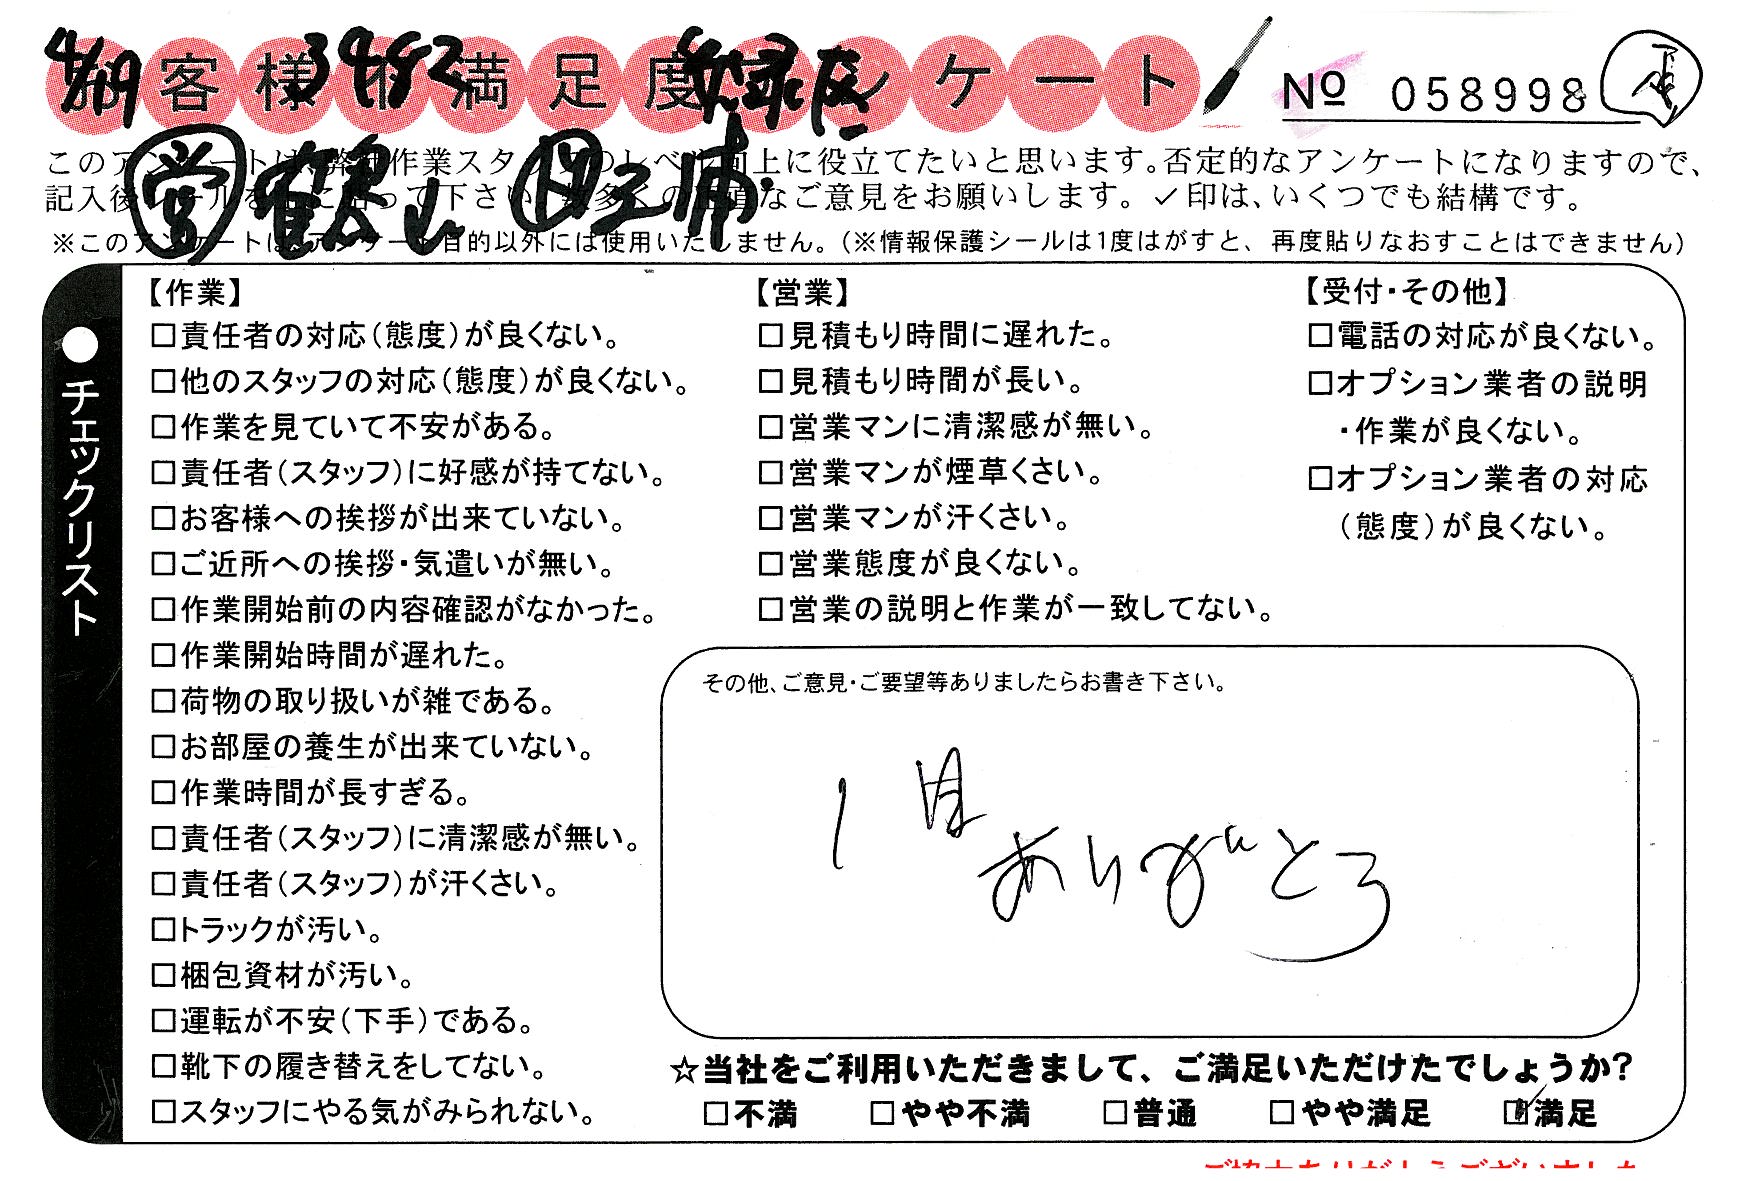 4/19 3982
お客様 満足度アンケート
No 058998
このアンケートは、弊社作業スタッフのレベル向上に役立てたいと思います。否定的なアンケートになりますので、
記入後シールを 貼って下さい。数多くの正直なご意見をお願いします。✓印は、いくつでも結構です。
営
※このアンケートは、アンケート目的以外には使用いたしません。(※情報保護シールは1度はがすと、再度貼りなおすことはできません)
●チェックリスト
【作業】
□責任者の対応(態度)が良くない。
□他のスタッフの対応(態度)が良くない。
□作業を見ていて不安がある。
□責任者(スタッフ)に好感が持てない。
□お客様への挨拶が出来ていない。
□ご近所への挨拶・気遣いが無い。
□作業開始前の内容確認がなかった。
□作業開始時間が遅れた。
□荷物の取り扱いが雑である。
□お部屋の養生が出来ていない。
□作業時間が長すぎる。
□責任者(スタッフ)に清潔感が無い。
□責任者(スタッフ)が汗くさい。
□トラックが汚い。
□梱包資材が汚い。
□運転が不安(下手)である。
□靴下の履き替えをしてない。
□スタッフにやる気がみられない。
【営業】
□見積もり時間に遅れた。
□見積もり時間が長い。
□営業マンに清潔感が無い。
□営業マンが煙草くさい。
□営業マンが汗くさい。
□営業態度が良くない。
□営業の説明と作業が一致してない。
【受付・その他】
□電話の対応が良くない。
□オプション業者の説明
・作業が良くない。
□オプション業者の対応
(態度)が良くない。
その他、ご意見・ご要望等ありましたらお書き下さい。
1日
ありがとう
☆当社をご利用いただきまして、ご満足いただけたでしょうか?
□不満 □やや不満 □普通 □やや満足 □満足
ご協力ありがとうございました